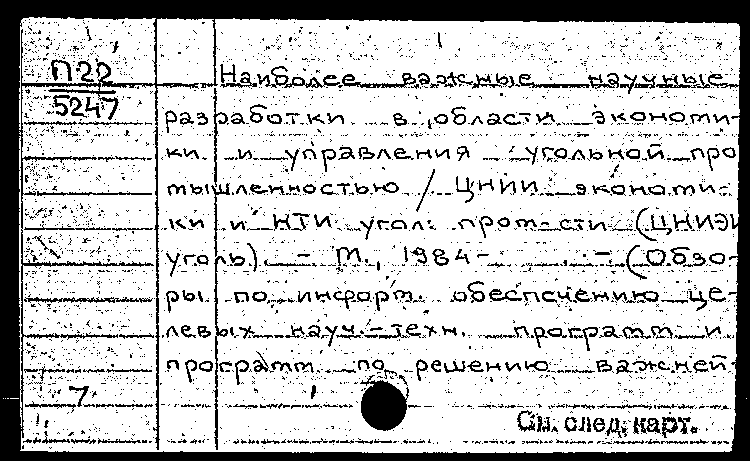 П22
5247
Наиболее важные научные
разработки в области экономи-
ки и управления угольной про
мышленностью / ЦНИИ экономи-
ки и НТИ угол: пром-сти (ЦНИЭИ
уголь). – М., 1984– . – (Обзо-
ры по информ. обеспечению це-
левых науч.-техн. программ и
программ по решению важней-
7
См. след. карт.